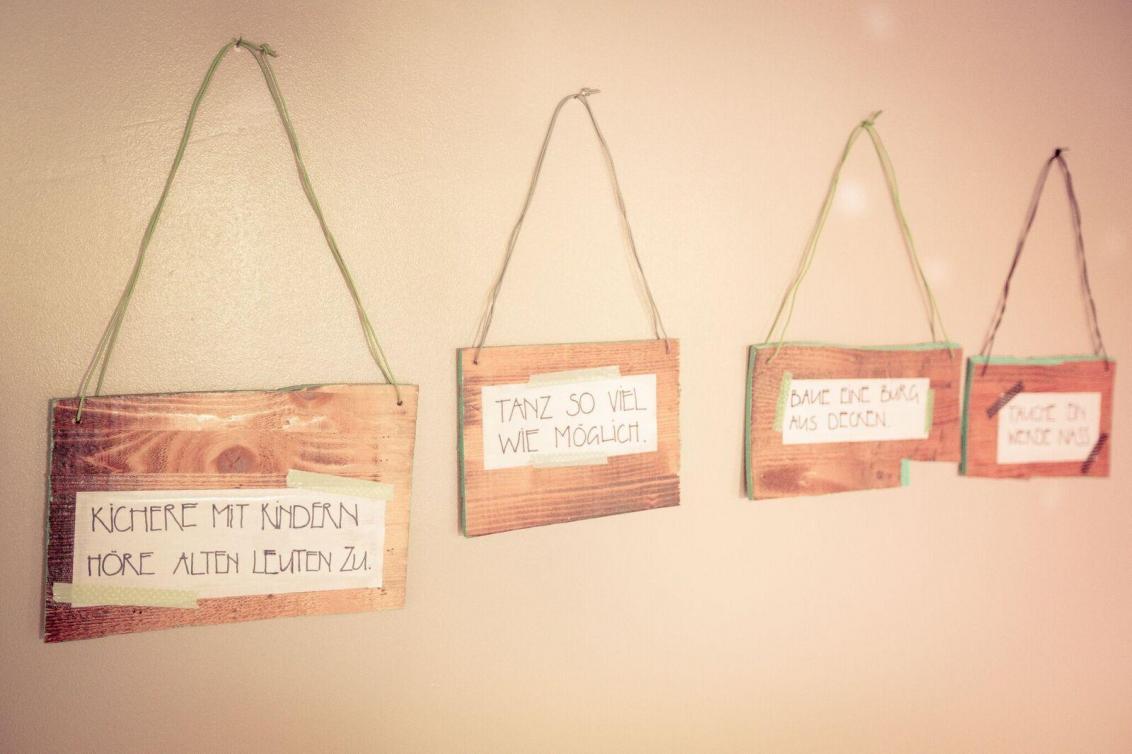 KICHERE MIT KINDERN
HÖRE ALTEN LEUTEN ZU.
TANZ SO VIEL
WIE MÖGLICH.
BAUE EINE BURG
AUS DECKEN.
TAUCHE EIN
WERDE NASS